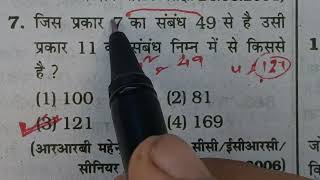 7. जिस प्रकार 7 का संबंध 49 से है उसी
प्रकार 11 संबंध निम्न में से किससे
है ? 49 121
(1) 100 (2) 81
(3) 121 (4) 169
(आरआरबी
सीनियर 2006)